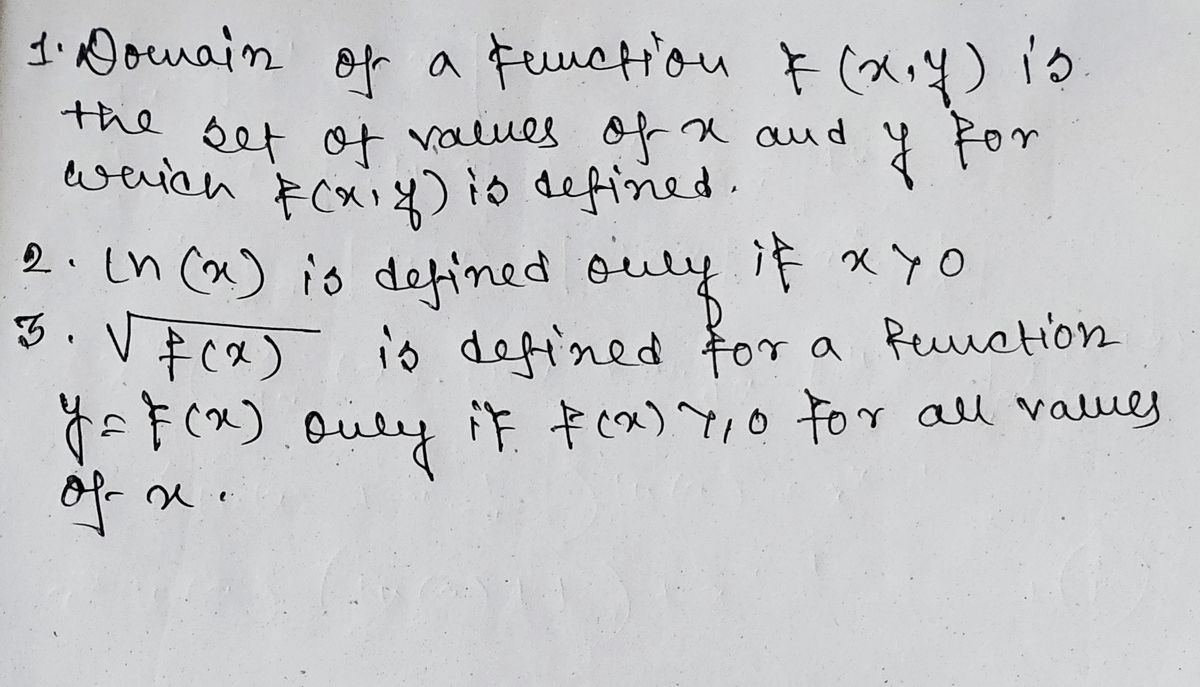 1. Domain of a function f(x,y) is
the set of values of x and y for
which f(x,y) is defined.
2. ln(x) is defined only if x>0
3. √f(x) is defined for a function
y=f(x) only if f(x)≥0 for all values
of x.